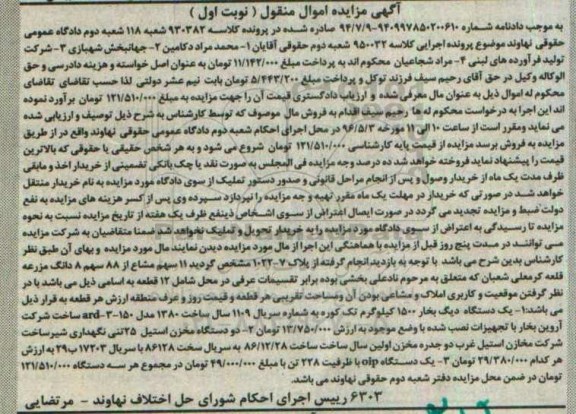 آگهی مزایده اموال منقول ( نوبت اول )
به موجب دادنامه شماره ۹۴۰۹۹۷۸۵۲۰۰۶۱۰-۹۴/۷/۹ صادره شده در پرونده کلاسه ۹۳۰۳۸۲ شعبه ۱۱۸ شعبه دوم دادگاه عمومی
حقوقی نهاوند موضوع پرونده اجرایی کلاسه ۹۵۰۰۳۲ شعبه دوم حقوقی آقایان ۱- محمد مراد دکامین ۲- جهانبخش شهبازی ۳- شرکت
تولید فرآورده های لبنی ۴- مراد شجاعیان محکوم اند به پرداخت مبلغ ۱۱/۱۴۲/۰۰۰ تومان به عنوان اصل خواسته و هزینه دادرسی و حق
الوکاله وکیل در حق آقای رحیم سیف فرزند توکل و پرداخت مبلغ ۵/۴۴۳/۲۰۰ تومان بابت نیم عشر دولتی لذا حسب تقاضای تقاضای
محکوم له اموال ذیل به عنوان مال معرفی شده و ارزیاب دادگستری قیمت آن را جهت مزایده به مبلغ ۱۲۱/۵۱۰/۰۰۰ تومان برآورد نموده
اند این اجرا به درخواست محکوم له ها رحیم سیف اقدام به فروش مال موصوف که توسط کارشناس به شرح ذیل توصیف و ارزیابی شده
می نماید ومقرر است از ساعت ۱۰ الی ۱۱ مورخه ۹۶/۵/۳ در محل اجرای احکام شعبه دوم دادگاه عمومی حقوقی نهاوند واقع در از طریق
مزایده به فروش برسد مزایده از قیمت پایه کارشناسی ۱۲۱/۵۱۰/۰۰۰ تومان شروع می شود و به هر شخص حقیقی یا حقوقی که بالاترین
قیمت را پیشنهاد نماید فروخته خواهد شد ده درصد وجه مزایده فی المجلس به صورت نقد یا چک بانکی تضمینی از خریدار اخذ و مابقی
ظرف مدت یک ماه از خریدار وصول و پس از انجام مراحل قانونی و صدور دستور تملیک از سوی دادگاه مورد مزایده به نام خریدار منتقل
خواهد شد در صورتی که خریدار در مهلت یک ماه مقرر تهیه و جه مزایده را نپردازد سپرده وی پس از کسر هزینه های مزایده به نفع
دولت ضبط و مزایده تجدید می گردد در صورت ایصال اعتراض از سوی اشخاص ذینفع ظرف یک هفته از تاریخ مزایده نسبت به نحوه
مزایده تا رسیدگی به اعتراض از سوی دادگاه مورد مزایده را به خریدار تحویل و تملیک نخواهد شد ضمنا متقاضیان به شرکت مزایده
می توانند در مدت پنج روز قبل از مزایده با هماهنگی این اجرا از مال مورد مزایده دیدن نمایند مال مورد مزایده و بهای آن طبق نظر
کارشناس بدین شرح می باشد با توجه به بازدید انجام گرفته از پلاک ۷-۱۰۲۲ مشخص گردید ۱۱ سهم مشاع از ۸۸ سهم ۸ دانگ مزرعه
قلعه کرمعلی شعبان که متعلق به مرحوم نادعلی بخشی بوده برابر تقسیمات عرفی در محل شامل ۱۲ قطعه به اسامی ذیل می باشد با در
نظر گرفتن موقعیت و کاربری املاک و مشاعی بودن آن ومساحت تقریبی هر قطعه و قیمت روز و عرف منطقه ارزش هر قطعه به قرار ذیل
می باشد:۱- یک دستگاه دیگ بخار ۱۵۰۰ کیلوگرم تک کوره به شماره سریال ۱۱۰۹ سال ساخت ۱۳۸۰ مدل ard-۳-۱۵۰ ساخت شرکت
آروین بخار با تجهیزات نصب شده با وضع موجود به ارزش ۱۳/۷۵۰/۰۰۰ تومان ۲- دو دستگاه مخزن استیل ۲۵تنی نگهداری شیرساخت
شرکت مخازن استیل غرب دو جدره مخزن اولین سال ساخت ۸۶/۱۲/۲۸ به سریال سخت ۸۶۱۲۸ با سریال ۱۷۲۰۳ ب۲۹ به ارزش
هر کدام ۲۹/۳۸۰/۰۰۰ تومان ۳- یک دستگاه oip با ظرفیت ۲۲۸ تن با مبلغ ۴۹/۰۰۰/۰۰۰ تومان در مجموع هر سه دستگاه ۱۲۱/۵۱۰/۰۰۰
تومان در ضمن محل مزایده دفتر شعبه دوم حقوقی نهاوند می باشد.
۶۳۰۳ رییس اجرای احکام شورای حل اختلاف نهاوند - مرتضایی